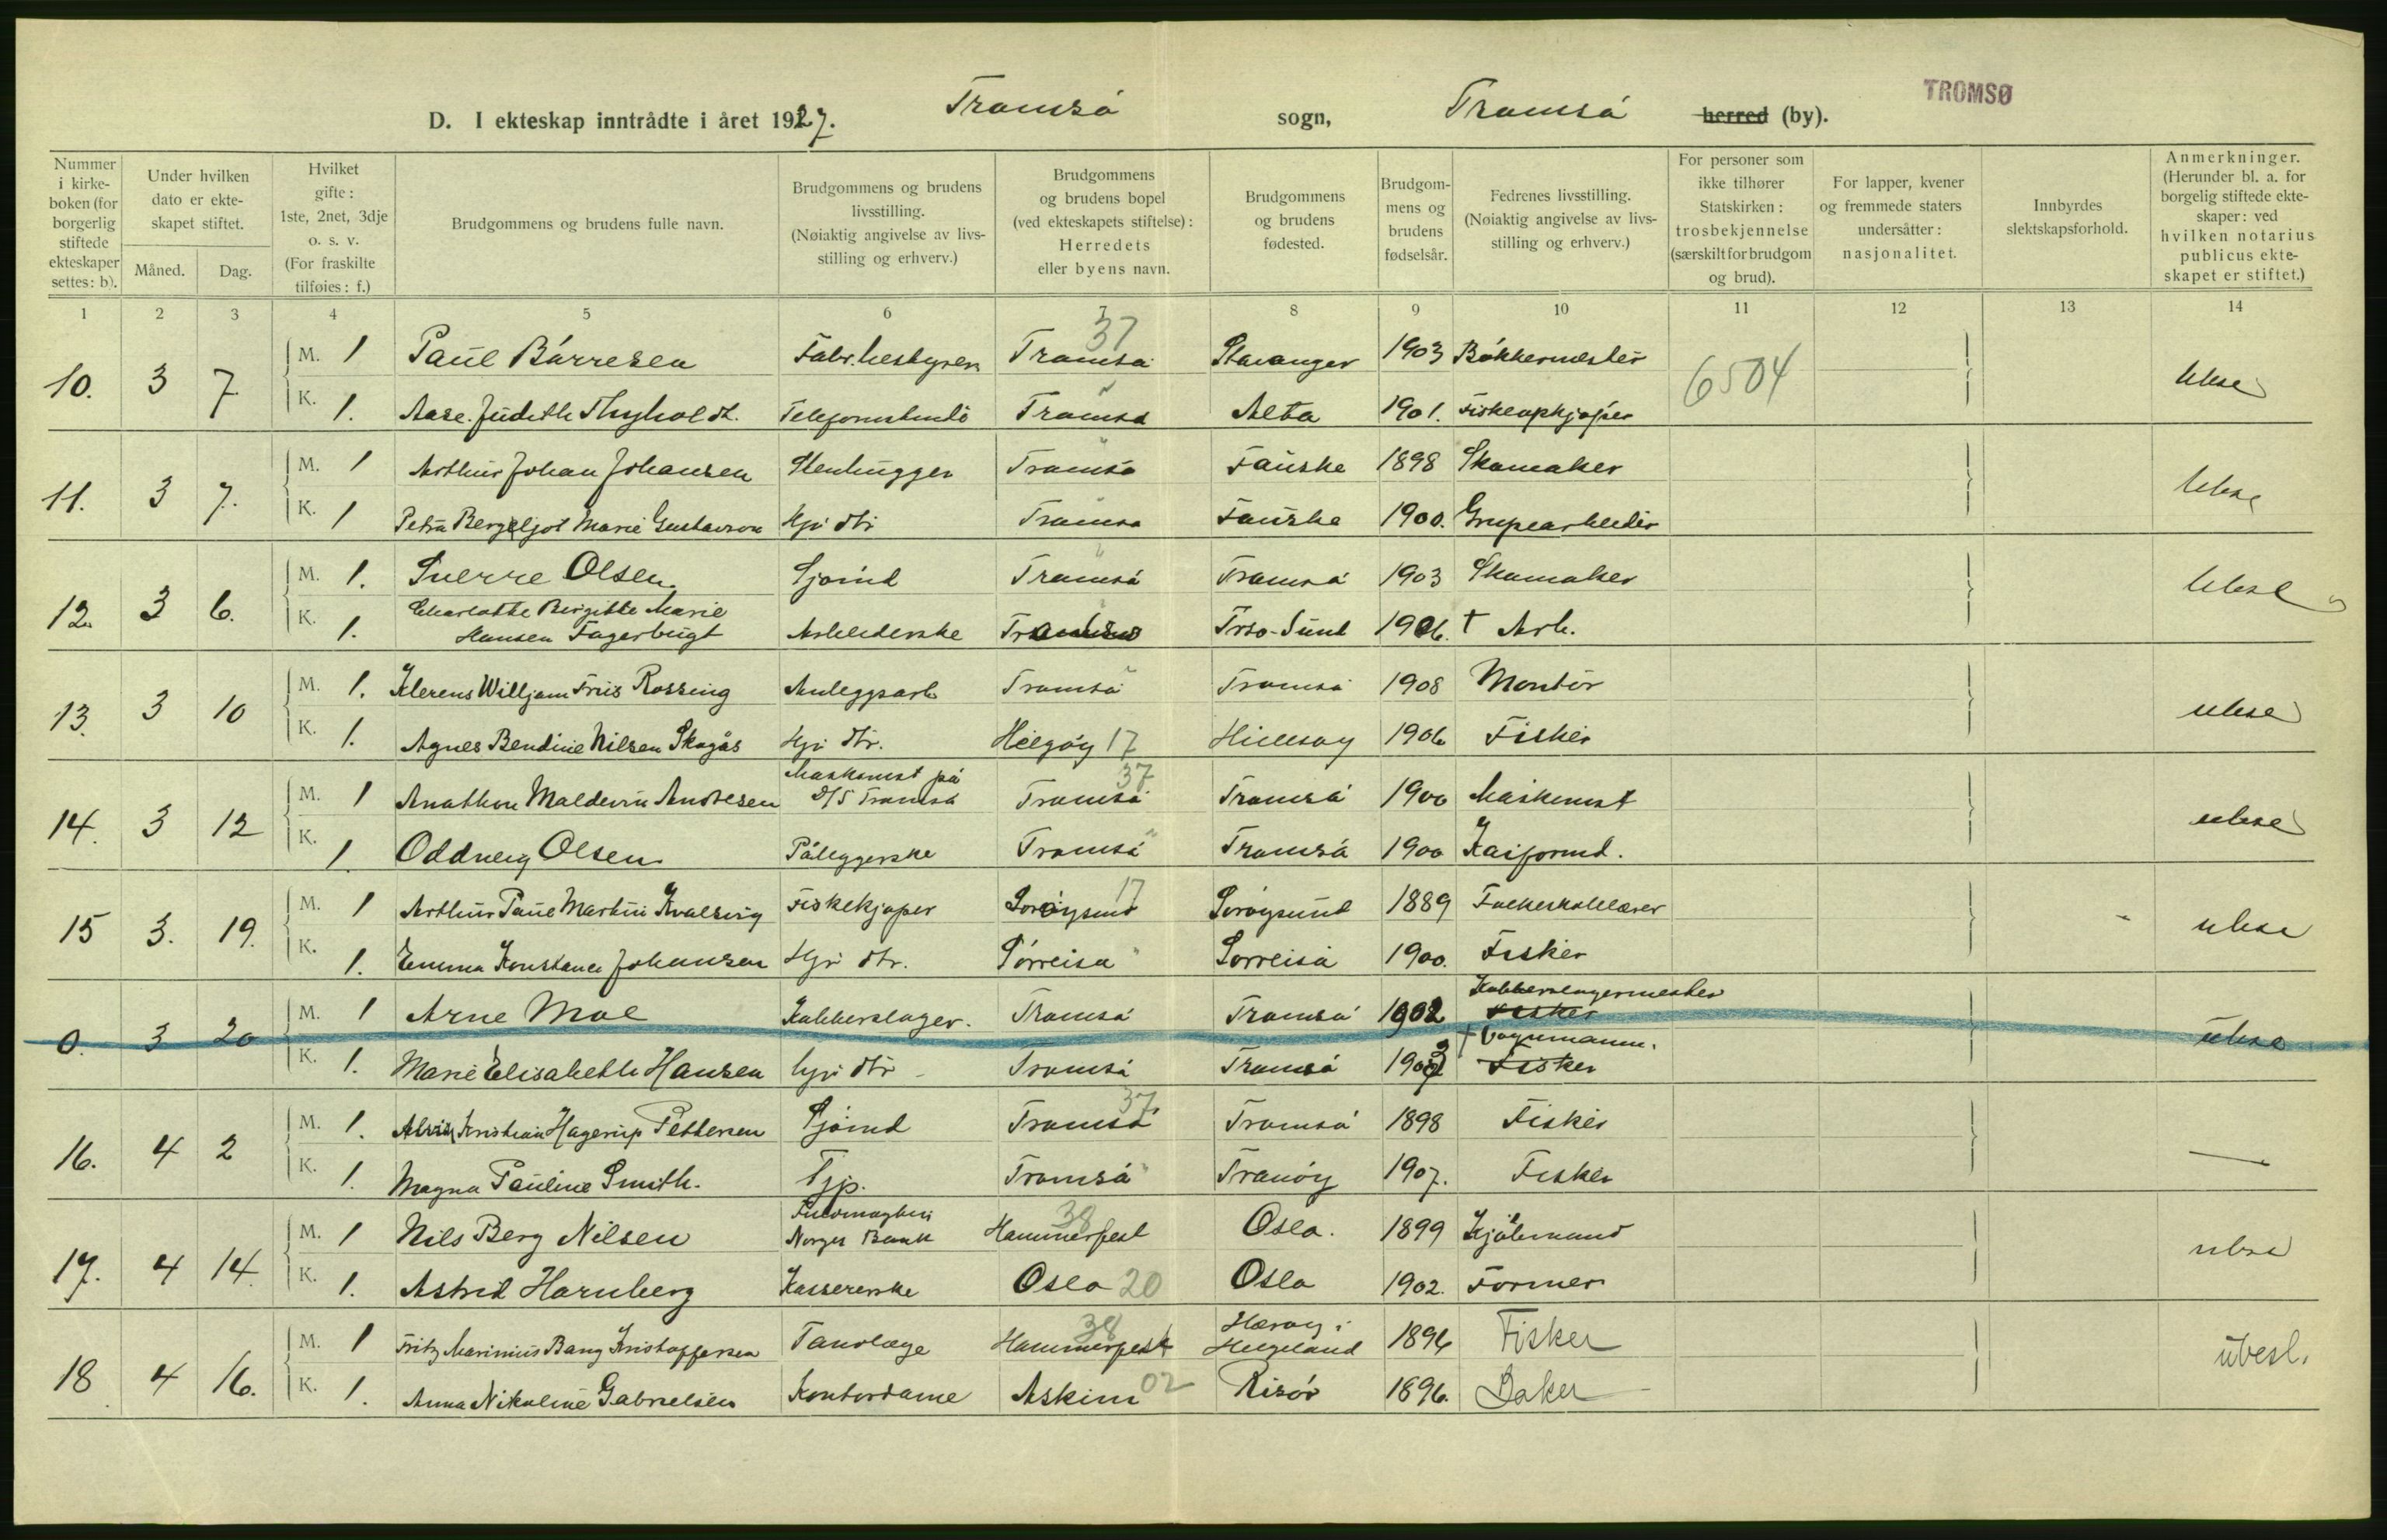 TROMSØ
D. I ekteskap inntrådte i året 1927. Tromsø sogn, Tromsø herred (by).
Nummer i kirke-boken (for borgerlig stiftede ekteskaper settes: b).
Under hvilken dato er ekte-skapet stiftet.
Måned. Dag.
Hvilket gifte: 1ste, 2net, 3dje o. s. v. (For fraskilte tilføies: f.)
Brudgommens og brudens fulle navn.
Brudgommens og brudens livsstilling. (Nøiaktig angivelse av livs-stilling og erhverv.)
Brudgommens og brudens bopel (ved ekteskapets stiftelse): Herredets eller byens navn.
Brudgommens og brudens fødested.
Brudgom-mens og brudens fødselsår.
Fedrenes livsstilling. (Nøiaktig angivelse av livs-stilling og erhverv.)
For personer som ikke tilhører Statskirken: trosbekjennelse (særskilt for brudgom og brud).
For lapper, kvener og fremmede staters undersåtter: nasjonalitet.
Innbyrdes slektskapsforhold.
Anmerkninger. (Herunder bl. a. for borgelig stiftede ekte-skaper: ved hvilken notarius publicus ekte-skapet er stiftet.)
1 2 3 4 5 6 7 8 9 10 11 12 13 14
10. 3 7 M. 1 Paul Børresen Fabr.bestyrer Tromsø 37 Stavanger 1903 Bøkkermester 6504 ubse
K. 1. Aase Judith Thyholdt. Tromsø " Alta 1901. Fiskeopkjøper
11. 3 7. M. 1 Arthur Johan Johansen Stenhugger Tromsø " Fauske 1898 Skomaker ubse
K. 1 Petra Bergeljot Marie Gustavson Hji dtr Tromsø " Fauske 1900. Grupearbeider
12. 3 6. M. 1. Sverre Olsen. Sjømd Tromsø " Tromsø 1903 Skomaker ubse
K. 1. Charlotte Birgitte Marie
Hansen Fagerbugt Arbeiderske Tromsø " Trsø-Sund 1906. † Arb.
13. 3 10 M. 1. Klerens Willjam Friis Rossing Anleggsarb Tromsø " Tromsø 1908 Montør ubse
K. 1. Agnes Bendine Nilsen Skogås Hji dtr. Helgøy 17 Hillesøy 1906 Fisker
14. 3 12 M. 1 Anathon Maldevin Andresen Maskinist på
D/S Tromsø Tromsø 37 Tromsø 1900 Maskinist ubse
K. 1. Oddveig Olsen Påleggerske Tromsø " Tromsø 1900 Kaiformd.
15 3. 19. M. 1 Arthur Paul Martin Kvalsvig Fiskekjøper Sørøysund 17 Sørøysund 1889 Folkeskolelærer ubse
K. 1. Emma Konstance Johansen Hji dtr. Sørreisa " Sørreisa 1900. Fisker
0. 3 20 M. 1 Arne Moe Kobberslager. Tromsø Tromsø 1902 Kobberslagermester
Fisker ubse
K. 1. Marie Elisabeth Hansen hji dtr Tromsø Tromsø 1903 † Vognmann.
Fisker
16. 4 2 M. 1. Kristian Hagerup Pettersen Sjømd Tromsø 37 Tromsø 1898 Fisker —
K. 1. Magna Pauline Smith. Tjp. Tromsø " Tranøy 1907. Fisker
17. 4 14. M. 1 Nils Berg Nilsen Fuldmægtig
Norges Bank Hammerfest 38 Oslo. 1899 Kjølemand ubse
K. 1. Astrid Hornberg Kassererske Oslo 20 Oslo 1902. Former
18 4 16. M. 1 Fritz Marinius Bang Kristoffersen Tandlæge Hammerfest 38 Herøy i
Helgeland 1896 Fisker ubesl.
K. 1. Anna Nikoline Gabrielsen Kontordame Askim 02 Risør 1896. Baker